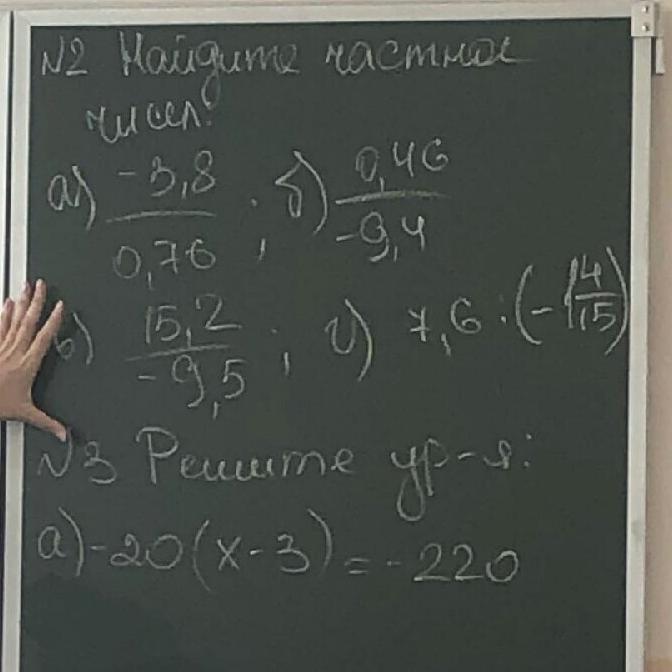 N2 Найдите частное
чисел:
а) -3,8 / 0,76 ; б) 0,46 / -9,4
в) 15,2 / -9,5 ; г) 7,6 : (-1 4/15)
N3 Решите ур-я:
а) -20(x-3) = -220